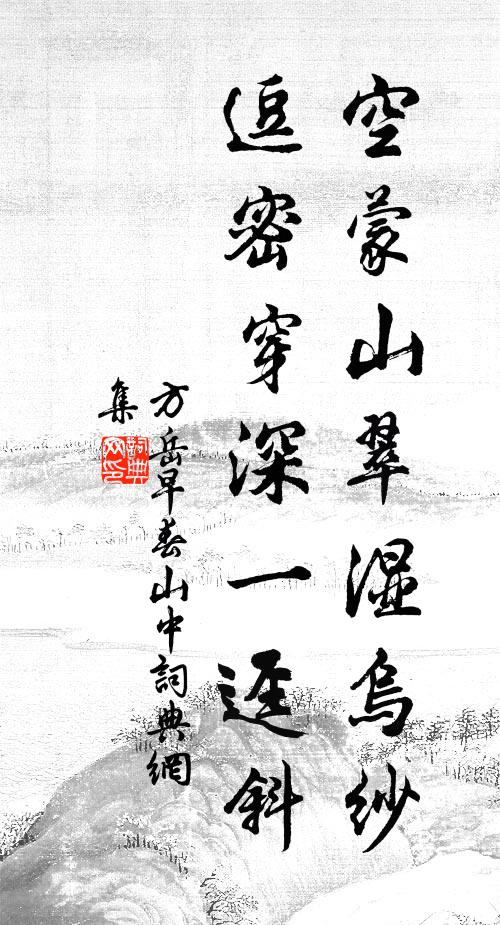 空蒙山翠湿乌纱
逗密穿深一迳斜
方岳早春山中詞典網
集
詞典
网印